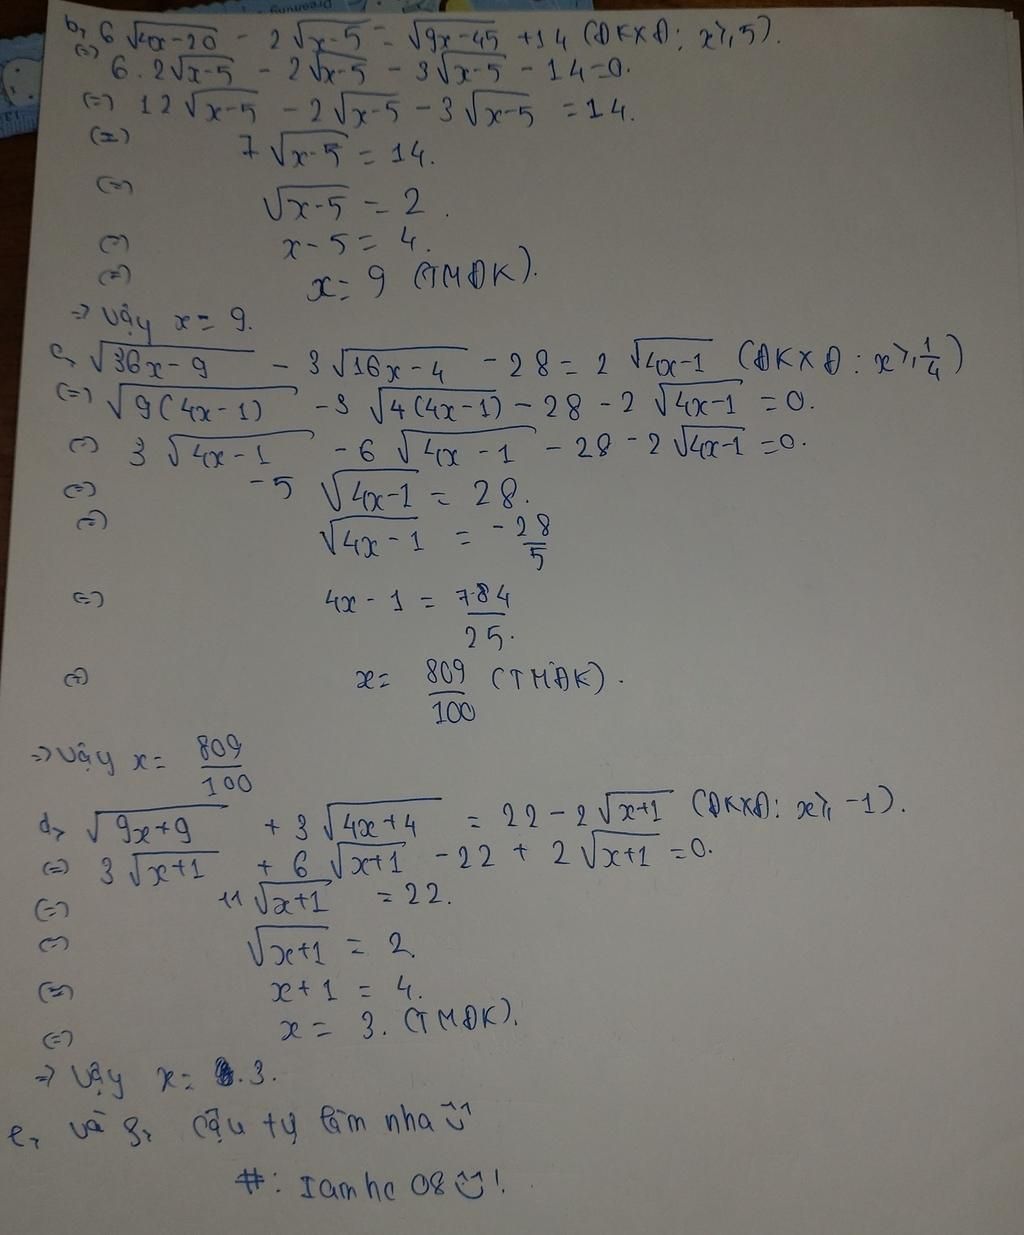 b, 6√4x-20 - 2√x-5 = √9x-45 +14 (ĐKXĐ: x⩾5).
(=) 6.2√x-5 - 2√x-5 - 3√x-5 - 14=0.
(=) 12√x-5 - 2√x-5 - 3√x-5 = 14.
(=) 7√x-5 = 14.
(=) √x-5 = 2.
(=) x-5 = 4.
(=) x= 9 (TMĐK).
=> Vậy x= 9.
c, √36x-9 - 3√16x-4 - 28 = 2√4x-1 (ĐKXĐ: x⩾1/4)
(=) √9(4x-1) -3√4(4x-1) - 28 - 2√4x-1 = 0.
(=) 3√4x-1 - 6√4x-1 - 28 - 2√4x-1 = 0.
(=) -5√4x-1 = 28.
(=) √4x-1 = -28/5
(=) 4x-1 = 784/25.
(=) x= 809/100 (TMĐK).
=> Vậy x= 809/100
d, √9x+9 + 3√4x+4 = 22 - 2√x+1 (ĐKXĐ: x⩾-1).
(=) 3√x+1 + 6√x+1 - 22 + 2√x+1 = 0.
(=) 11√x+1 = 22.
(=) √x+1 = 2
(=) x+1 = 4.
(=) x = 3. (TMĐK).
=> Vậy x= 3.
e, và g, cậu tự làm nha
#: Iamhc 08 !